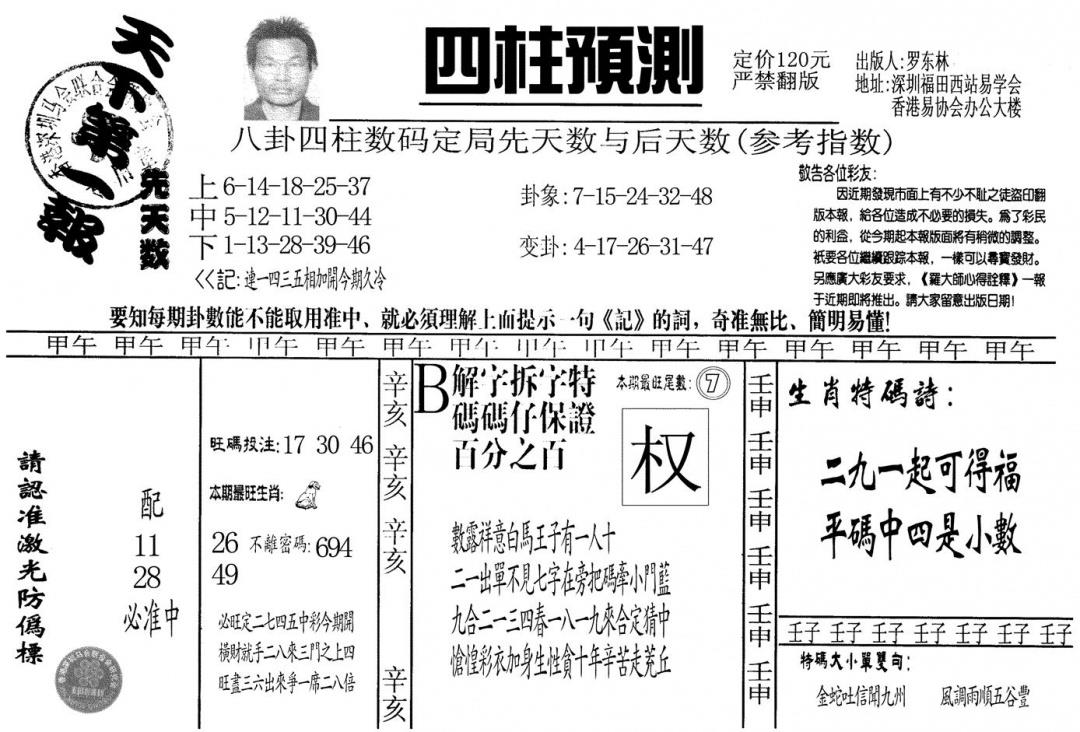 天下第一報
四柱預測
定价120元
严禁翻版
出版人:罗东林
地址:深圳福田西站易学会
香港易协会办公大楼
八卦四柱数码定局先天数与后天数(参考指数)
先天数
上 6-14-18-25-37
中 5-12-11-30-44
下 1-13-28-39-46
<<記:連一四三五相加開今期久冷
卦象:7-15-24-32-48
变卦:4-17-26-31-47
敬告各位彩友:
因近期發現市面上有不少不耻之徒盜印翻
版本報,給各位造成不必要的損失。爲了彩民
的利益,從今期起本報版面將有稍微的調整。
衹要各位繼續跟踪本報,一樣可以尋寶發財。
另應廣大彩友要求,《羅大師心得詮釋》一報
于近期即將推出。請大家留意出版日期!
要知每期卦數能不能取用准中、就必須理解上面提示一句《記》的詞,奇准無比、簡明易懂!
甲午 甲午 甲午 甲午 甲午 甲午 甲午 甲午 甲午 甲午 甲午 甲午 甲午 甲午 甲午
請認准激光防僞標
配
11
28
必准中
旺碼投注:17 30 46
本期最旺生肖:
26 不離密碼:694
49
必旺定二七四五中彩今期開
橫財就手二八來三門之上四
旺盡三六出來爭一席二八倍
辛亥 辛亥 辛亥 辛亥
B解字拆字特
碼碼仔保證
百分之百
本期最旺尾數:7
权
數露祥意白馬王子有一人十
二一出單不見七字在旁把碼牽小門藍
九合二一三四春一八一九來合定猜中
愴惶彩衣加身生性貪十年辛苦走荒丘
壬申 壬申 壬申 壬申 壬申 壬申
生肖特碼詩:
二九一起可得福
平碼中四是小數
壬子 壬子 壬子 壬子 壬子 壬子 壬子
特碼大小單雙句:
金蛇吐信聞九州 風調雨順五谷豐